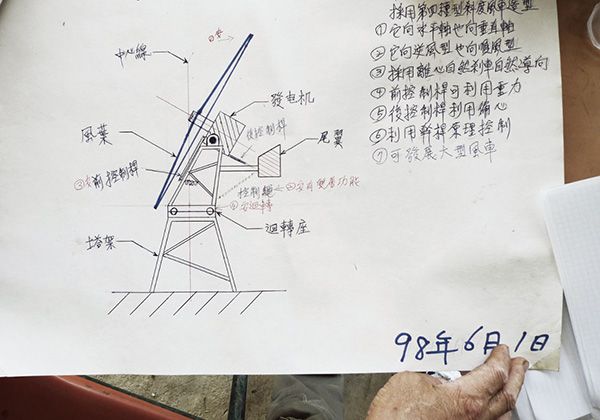 採用第四種型斜度風車造型
① 它向水平軸也向垂直軸
② 它向逆風型也向順風型
③ 採用離心自然剎車自然導向
④ 前控制桿可利用重力
⑤ 後控制桿利用偏心
⑥ 利用幹桿原理控制
⑦ 可發展大型風車
中心線
發电机
後控制桿
尾翼
風葉
前控制桿
控制繩
②它有雙層功能
①它迴轉
迴轉座
塔架
98年6月1日